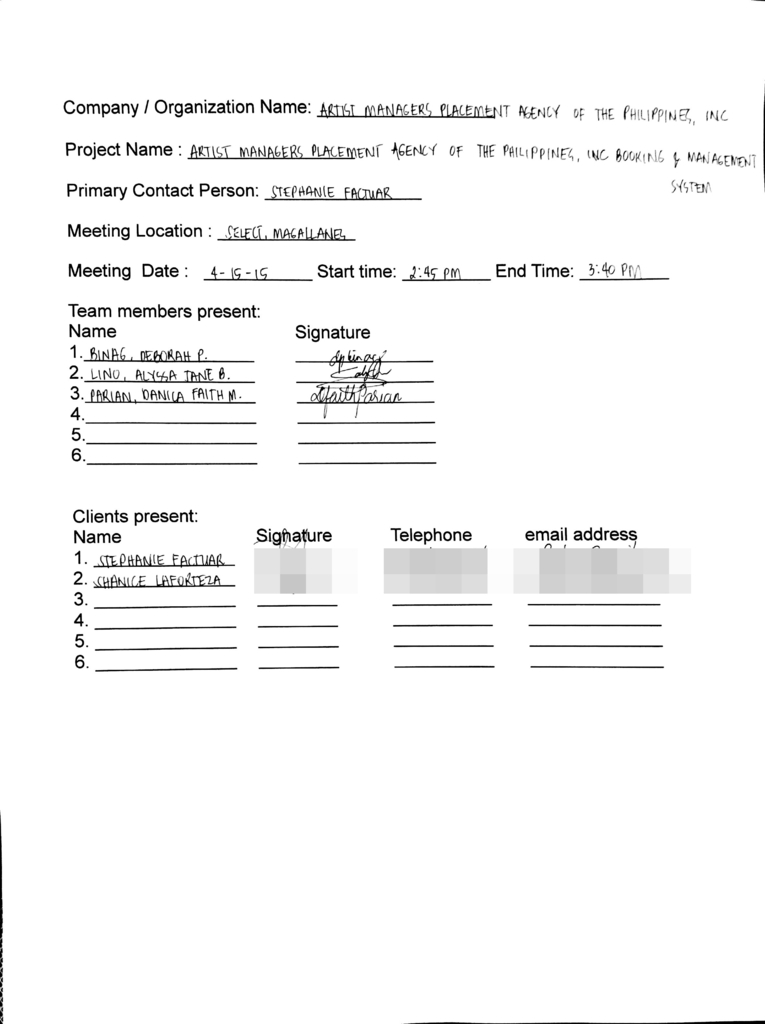 Company / Organization Name: ARTIST MANAGERS PLACEMENT AGENCY OF THE PHILIPPINES, INC
Project Name : ARTIST MANAGERS PLACEMENT AGENCY OF THE PHILIPPINES, INC BOOKING & MANAGEMENT
SYSTEM
Primary Contact Person: STEPHANIE FACTUAR
Meeting Location : SELECT, MAGALLANES
Meeting Date : 4-15-15 Start time: 2:45 PM End Time: 3:40 PM
Team members present:
Name Signature
1. BINAG, DEBORAH P.
2. LINO, ALYSSA JANE B.
3. PARIAN, DANICA FAITH M. dfaithParian
4.
5.
6.
Clients present:
Name Signature Telephone email address
1. STEPHANIE FACTUAR
2. SHANICE LAFORTEZA
3.
4.
5.
6.